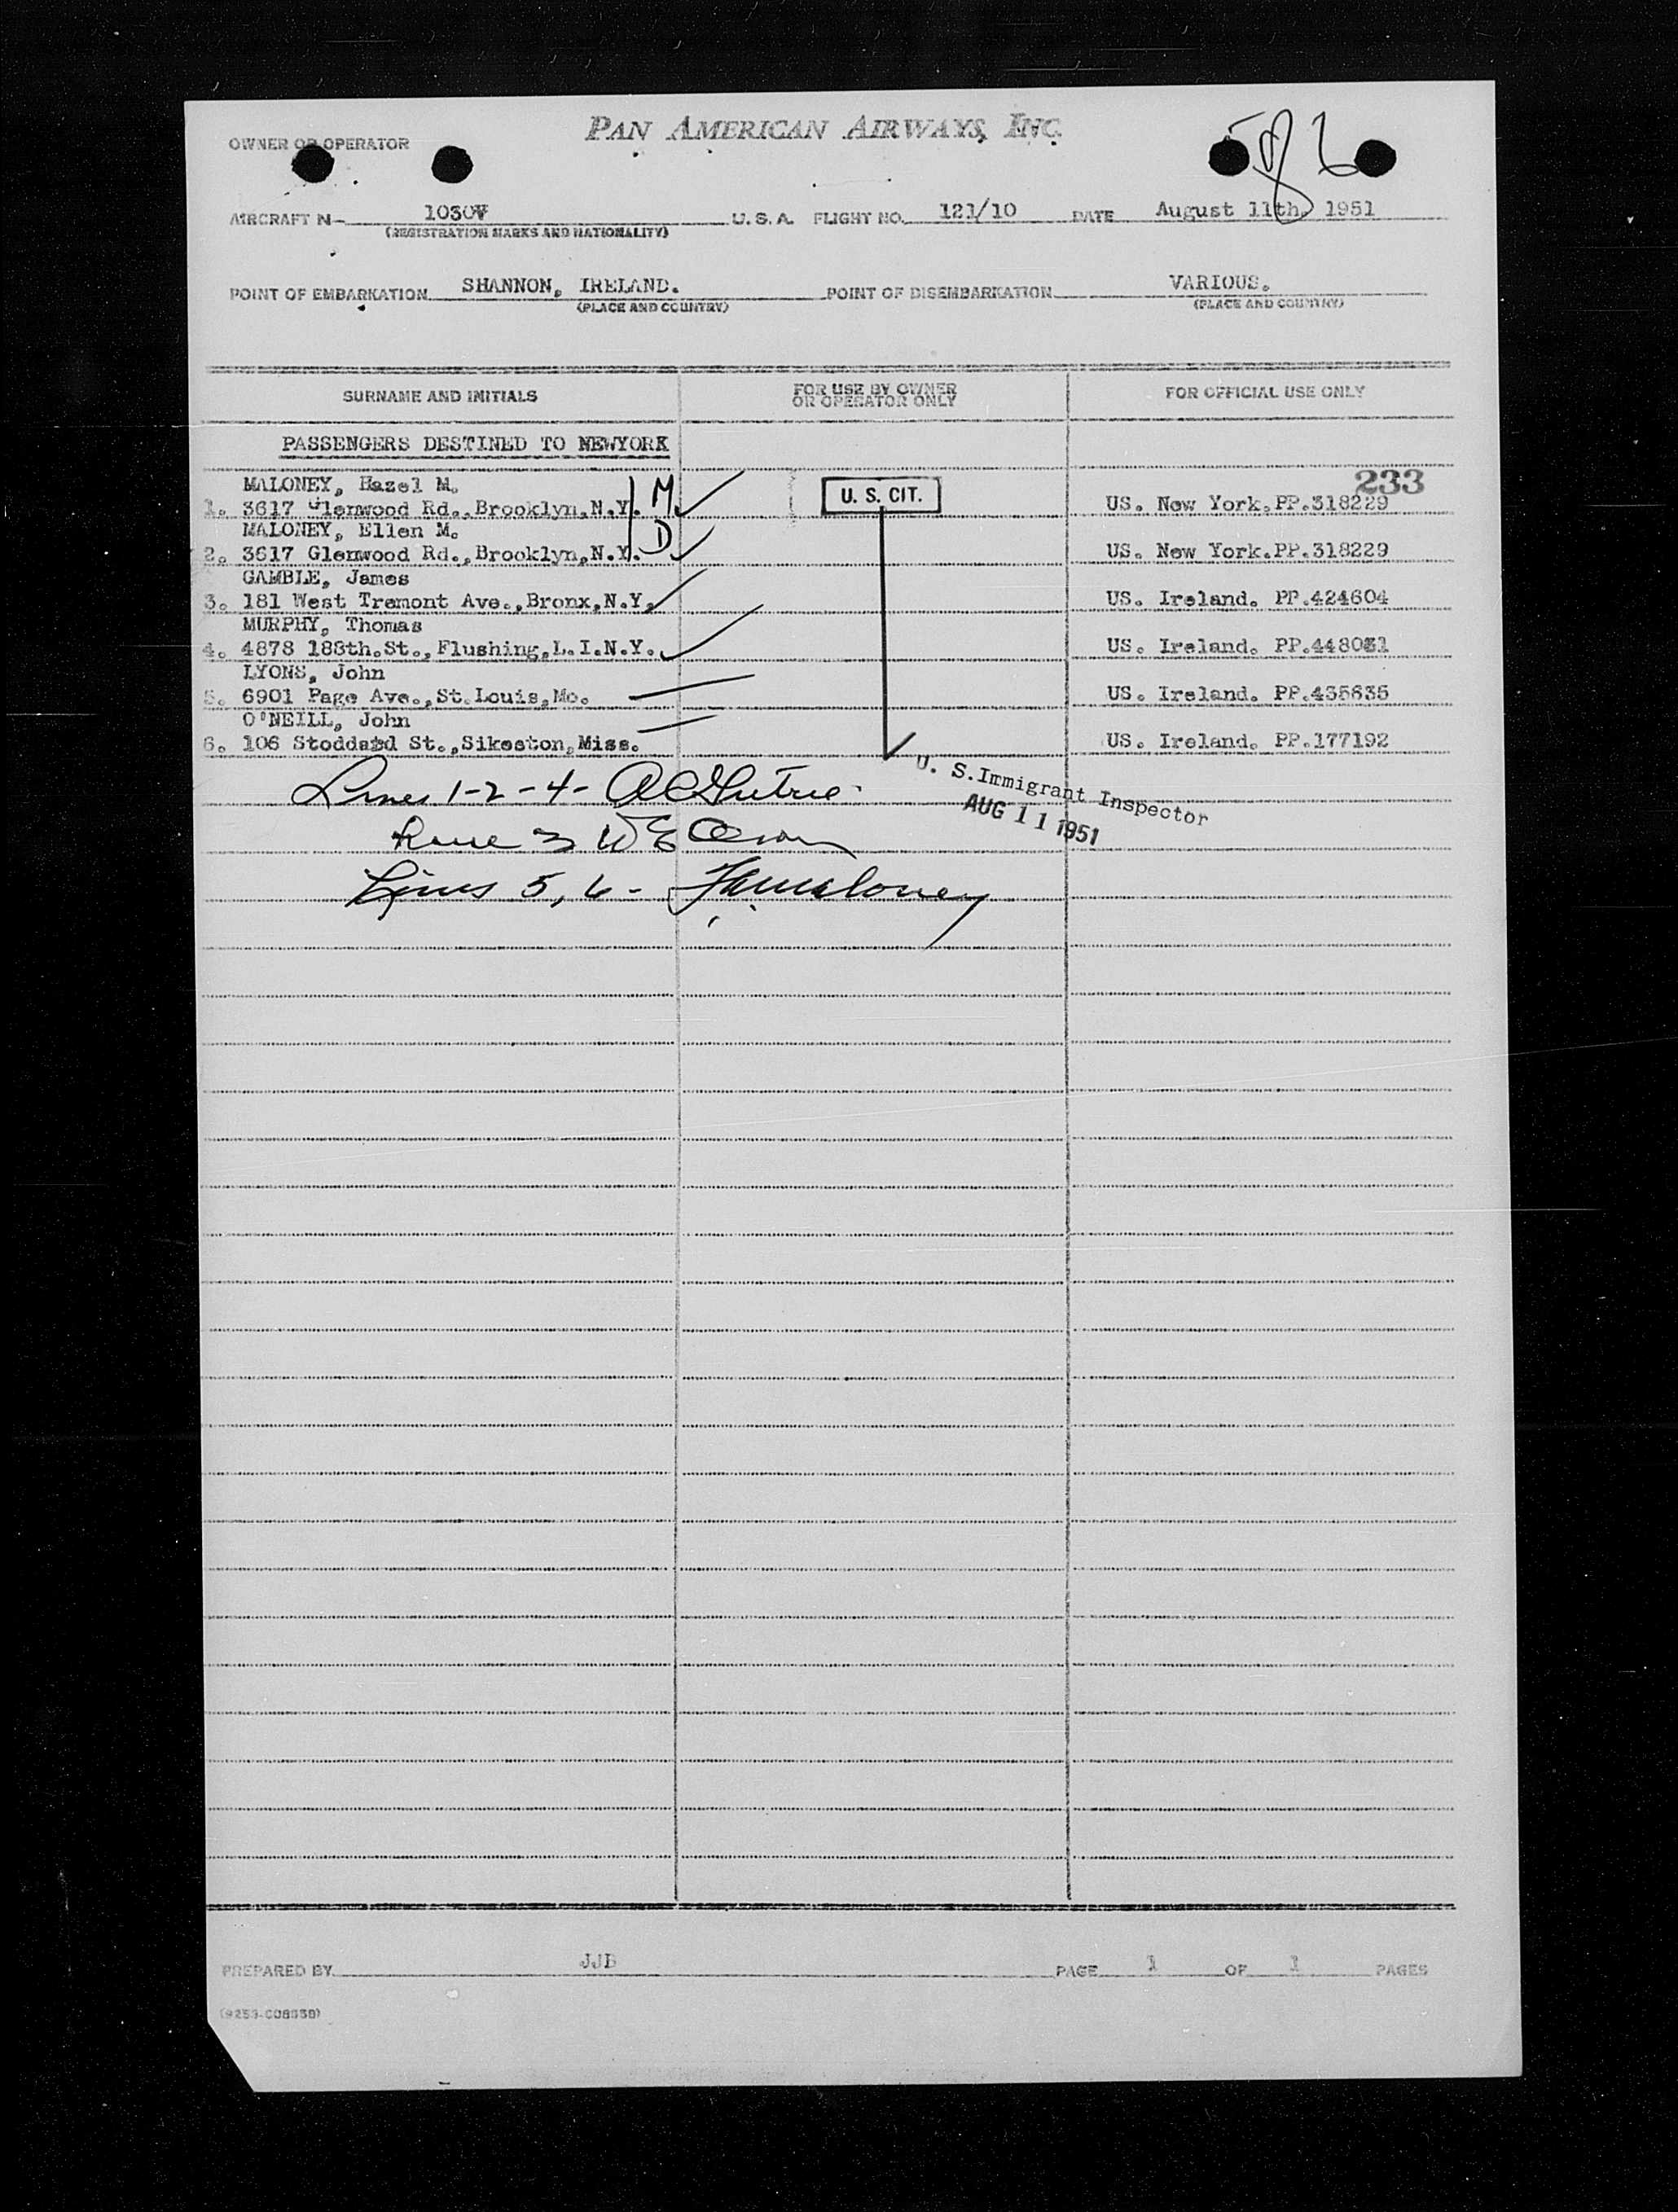 PAN AMERICAN AIRWAYS, INC.
OWNER OR OPERATOR
AIRCRAFT N- 1030V U. S. A. FLIGHT NO. 121/10 DATE August 11th, 1951
(REGISTRATION MARKS AND NATIONALITY)
POINT OF EMBARKATION SHANNON, IRELAND. POINT OF DISEMBARKATION VARIOUS.
(PLACE AND COUNTRY) (PLACE AND COUNTRY)
SURNAME AND INITIALS FOR USE BY OWNER OR OPERATOR ONLY FOR OFFICIAL USE ONLY
PASSENGERS DESTINED TO NEWYORK
233
MALONEY, Hazel M. M
1. 3617 Glenwood Rd.,Brooklyn,N.Y. U. S. CIT. US. New York.PP.318229
MALONEY, Ellen M. D
2. 3617 Glenwood Rd.,Brooklyn,N.Y. US. New York.PP.318229
GAMBLE, James
3. 181 West Tremont Ave.,Bronx,N.Y. US. Ireland. PP.424604
MURPHY, Thomas
4. 4878 188th.St.,Flushing,L.I.N.Y. US. Ireland. PP.448031
LYONS, John
5. 6901 Page Ave.,St.Louis,Mo. US. Ireland. PP.435635
O'NEILL, John
6. 106 Stoddard St.,Sikeston,Miss. US. Ireland. PP.177192
U. S. Immigrant Inspector
AUG 11 1951
Lines 1-2-4-
Line 3 WE
Lines 5, 6 - Maloney
PREPARED BY JJB PAGE 1 OF 1 PAGES